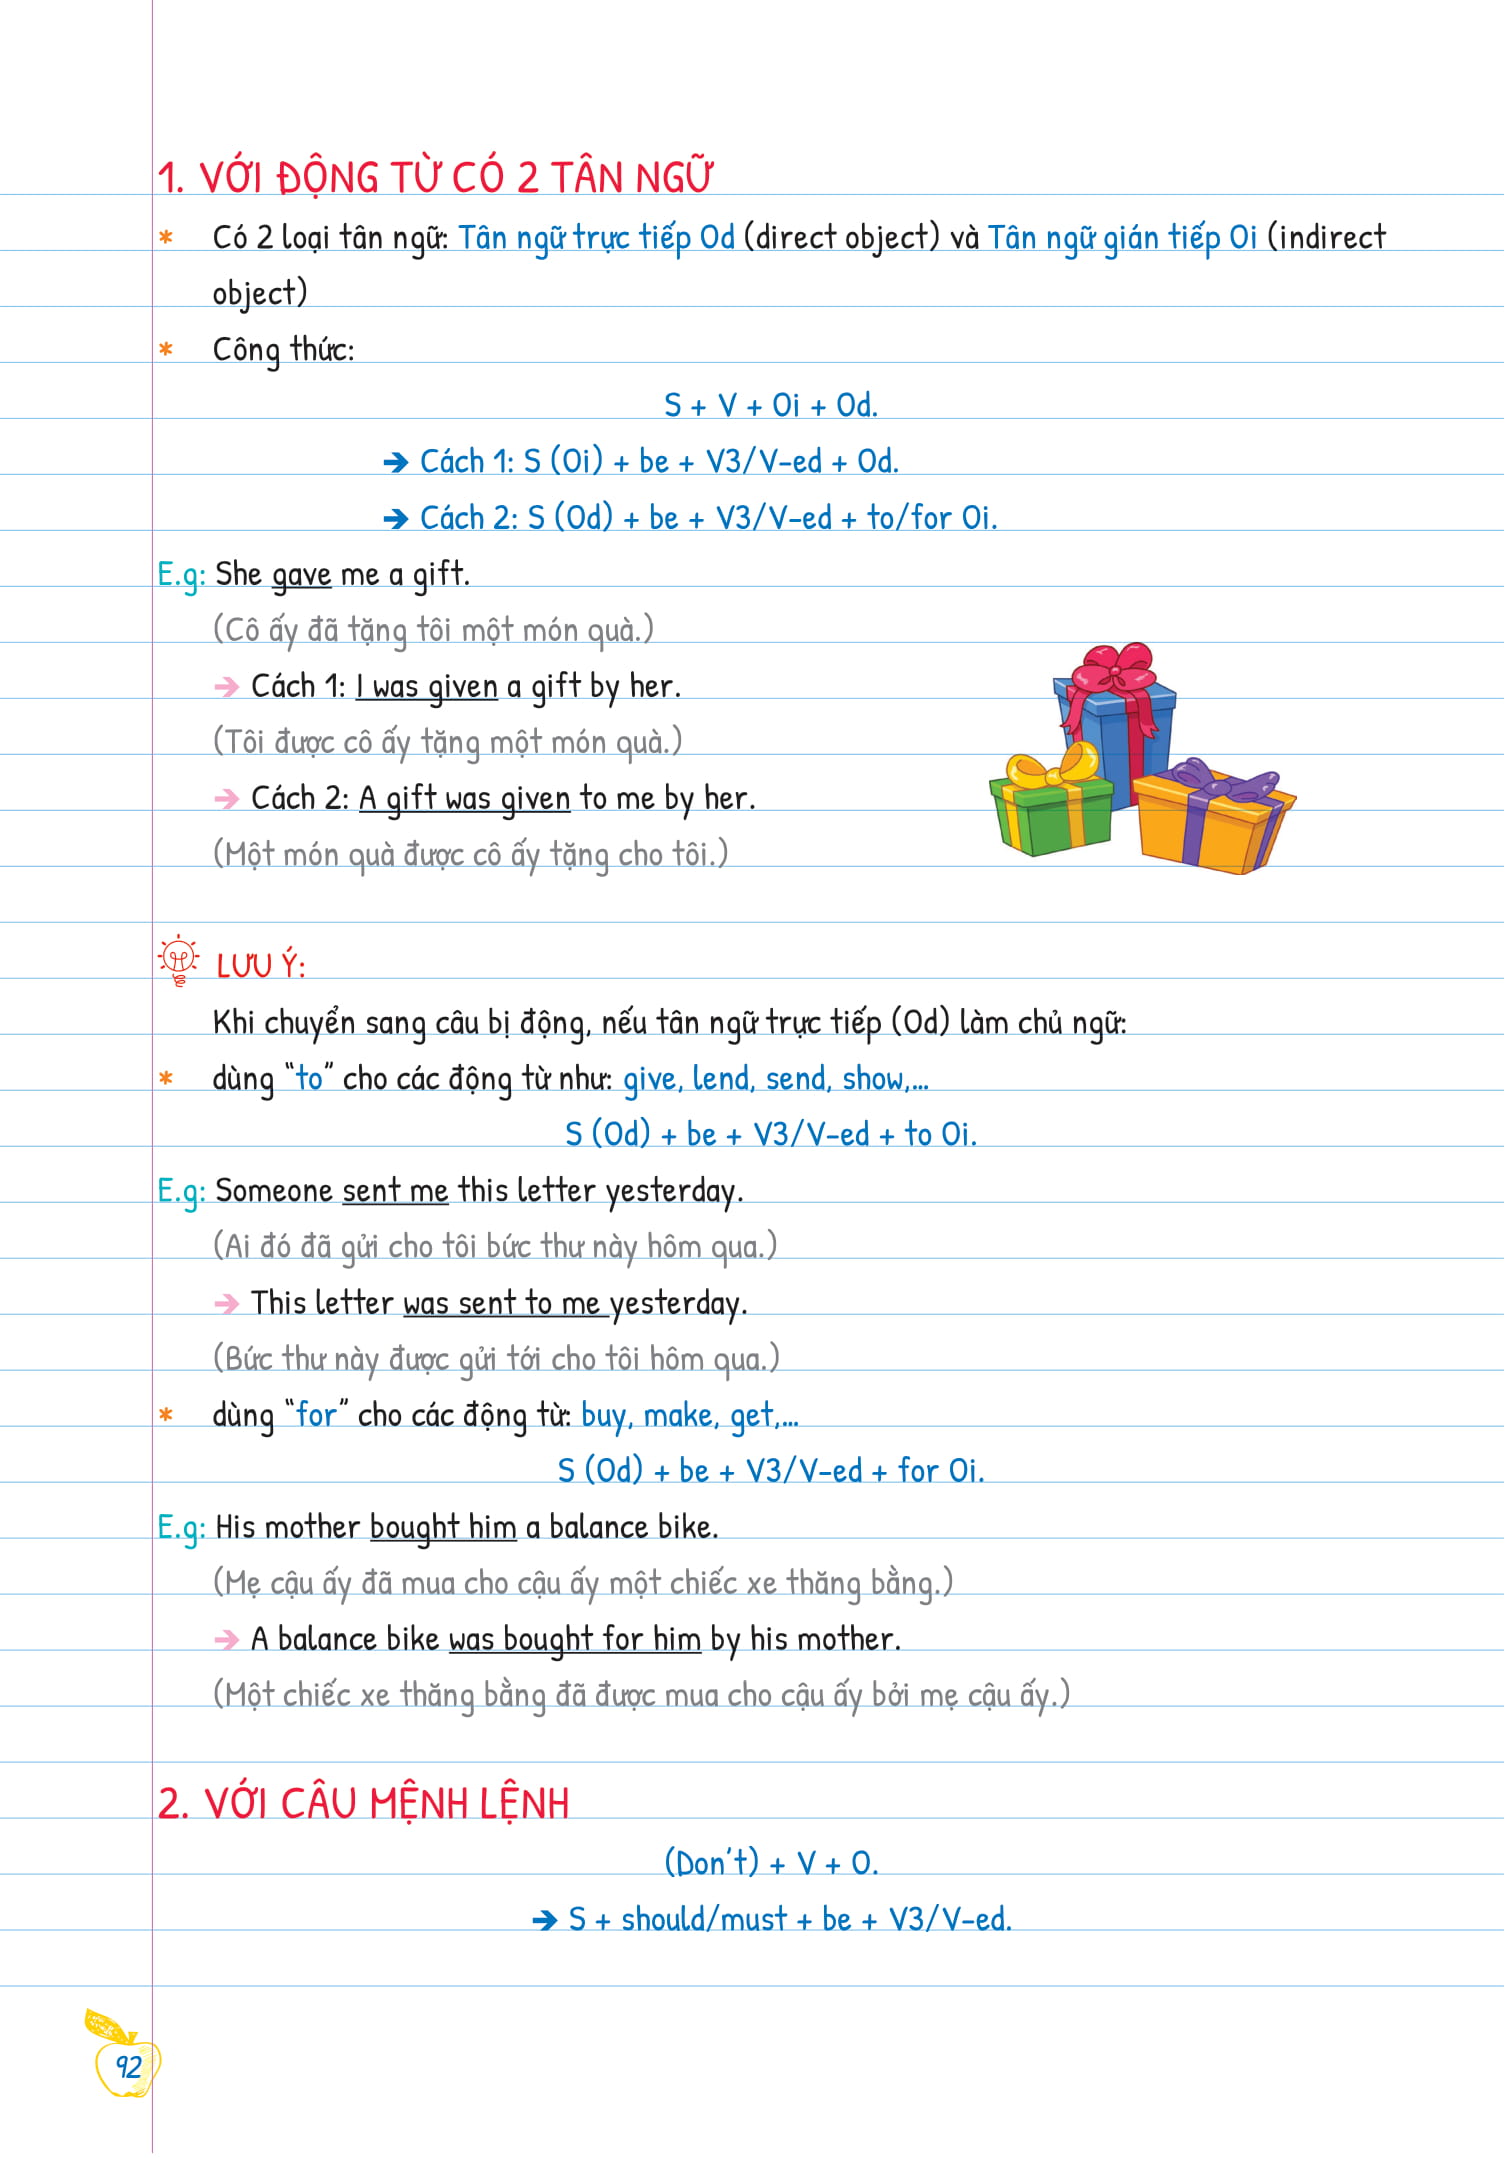 1. VỚI ĐỘNG TỪ CÓ 2 TÂN NGỮ
* Có 2 loại tân ngữ: Tân ngữ trực tiếp Od (direct object) và Tân ngữ gián tiếp Oi (indirect
object)
* Công thức:
S + V + Oi + Od.
➔ Cách 1: S (Oi) + be + V3/V-ed + Od.
➔ Cách 2: S (Od) + be + V3/V-ed + to/for Oi.
E.g: She gave me a gift.
(Cô ấy đã tặng tôi một món quà.)
➔ Cách 1: I was given a gift by her.
(Tôi được cô ấy tặng một món quà.)
➔ Cách 2: A gift was given to me by her.
(Một món quà được cô ấy tặng cho tôi.)
LƯU Ý:
Khi chuyển sang câu bị động, nếu tân ngữ trực tiếp (Od) làm chủ ngữ:
* dùng “to” cho các động từ như: give, lend, send, show,...
S (Od) + be + V3/V-ed + to Oi.
E.g: Someone sent me this letter yesterday.
(Ai đó đã gửi cho tôi bức thư này hôm qua.)
➔ This letter was sent to me yesterday.
(Bức thư này được gửi tới cho tôi hôm qua.)
* dùng “for” cho các động từ: buy, make, get,...
S (Od) + be + V3/V-ed + for Oi.
E.g: His mother bought him a balance bike.
(Mẹ cậu ấy đã mua cho cậu ấy một chiếc xe thăng bằng.)
➔ A balance bike was bought for him by his mother.
(Một chiếc xe thăng bằng đã được mua cho cậu ấy bởi mẹ cậu ấy.)
2. VỚI CÂU MỆNH LỆNH
(Don't) + V + O.
➔ S + should/must + be + V3/V-ed.
92